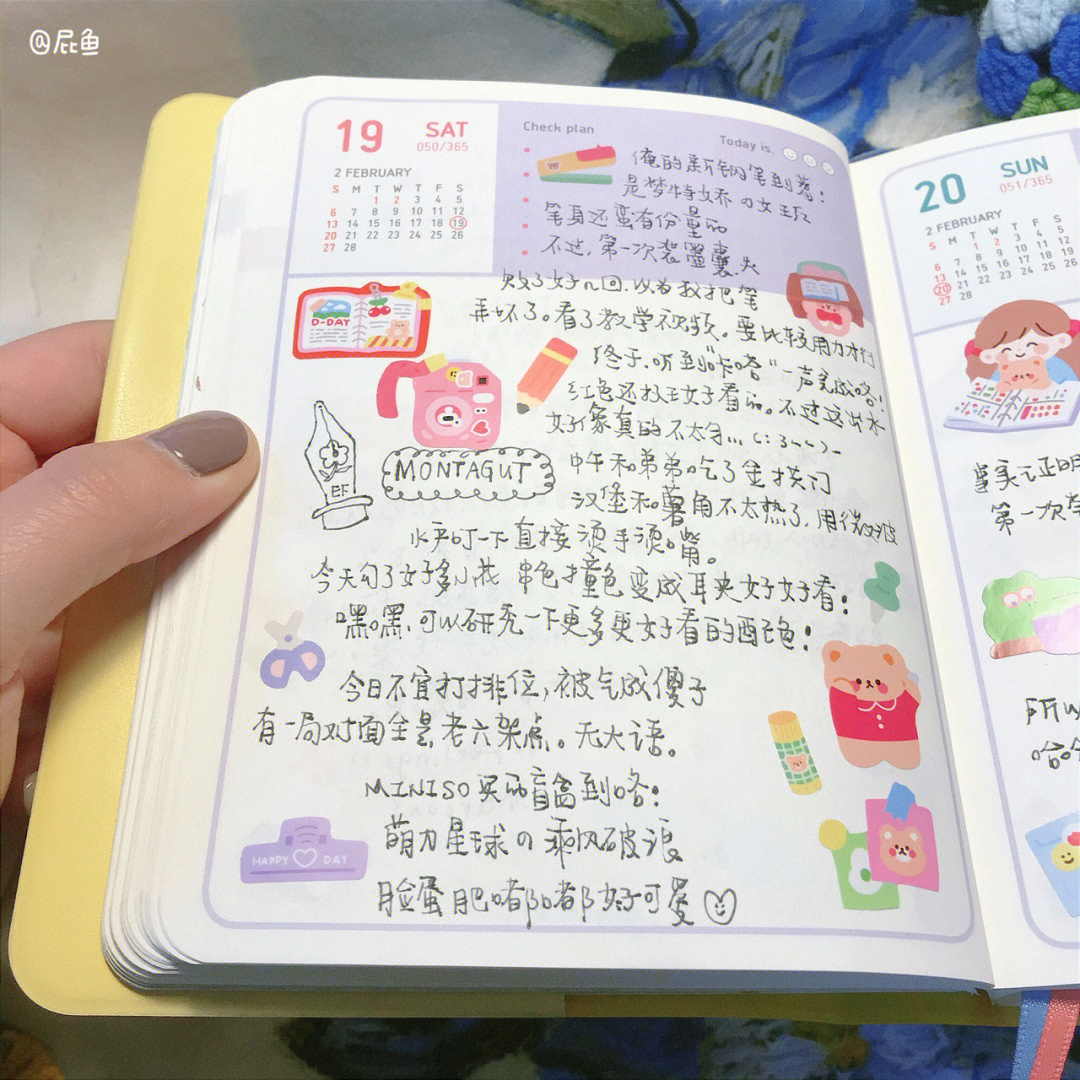 @屁鱼
19 SAT
050/365
2 FEBRUARY
S M T W T F S
1 2 3 4 5
6 7 8 9 10 11 12
13 14 15 16 17 18 19
20 21 22 23 24 25 26
27 28
Check plan
Today is.
俺的新钢笔到惹!
是梦特娇の女王版
笔身还蛮有份量的
不过,第一次装墨囊失
败了好几回,以为我把笔
弄坏了。看了教学视频。要比较用力才行
终于,听到“咔嗒”一声
红色还挺好看的。不过这出水
好像真的不太多...
D-DAY
EF
MONTAGUT
中午和弟弟吃了金拱门
汉堡和薯角不太热了,用微波
炉叮一下直接烫手烫嘴。
今天勾了好多小花 串色撞色变成耳夹好好看!
嘿嘿,可以研究一下更多更好看的配色!
今日不宜打排位,被气成傻子
有一局对面全是老六架点。无大语。
MINISO买的盲盒到咯!
萌力星球の乘风破浪
脸蛋肥嘟嘟好可爱
HAPPY DAY
20 SUN
051/365
2 FEBRUARY
S M T W T F S
1 2 3 4 5
6 7 8 9 10 11 12
13 14 15 16 17 18 19
20 21 22 23 24 25 26
27 28
事实证明
第一次
所以
哈哈